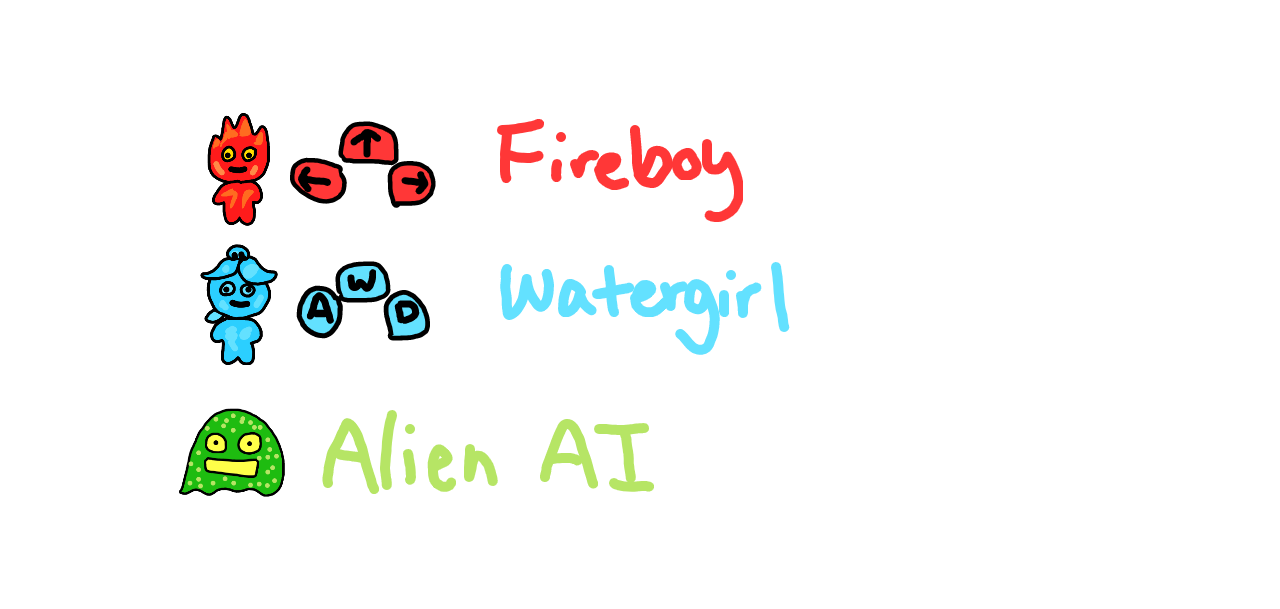 ← ↑ → Fireboy
A W D Watergirl
Alien AI